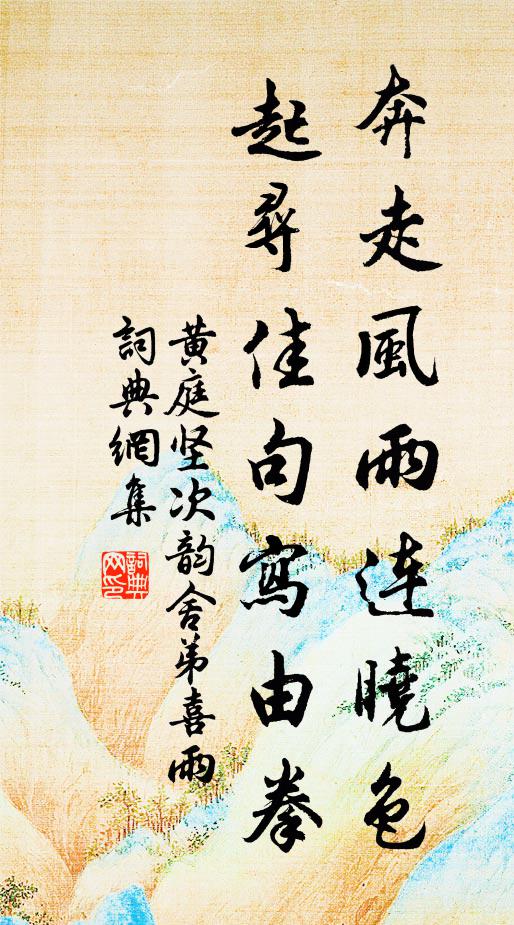 奔走風雨連曉色
起尋佳句寫由拳
黄庭坚次韵舍弟喜雨
詞典網集
詞典